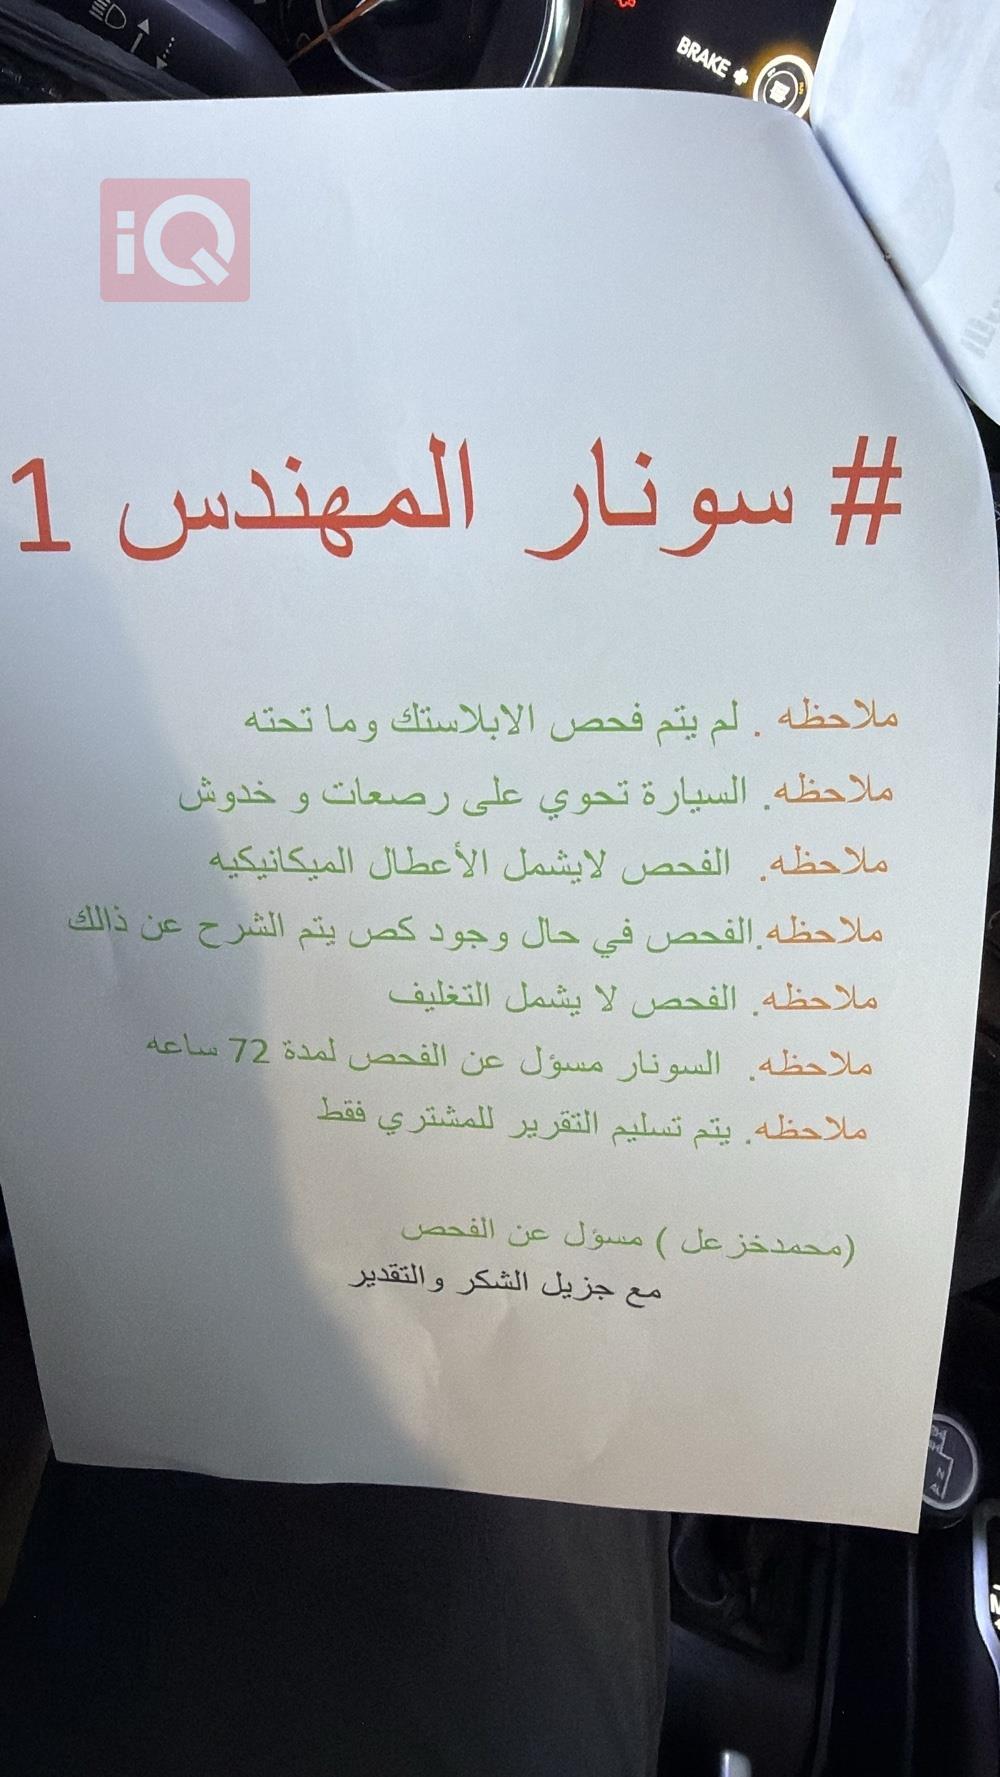 BRAKE
iQ
# سونار المهندس 1
ملاحظه . لم يتم فحص الابلاستك وما تحته
ملاحظه. السيارة تحوي على رصعات و خدوش
ملاحظه. الفحص لايشمل الأعطال الميكانيكيه
ملاحظه.الفحص في حال وجود كص يتم الشرح عن ذالك
ملاحظه. الفحص لا يشمل التغليف
ملاحظه. السونار مسؤل عن الفحص لمدة 72 ساعه
ملاحظه. يتم تسليم التقرير للمشتري فقط
(محمدخزعل ) مسؤل عن الفحص
مع جزيل الشكر والتقدير
N